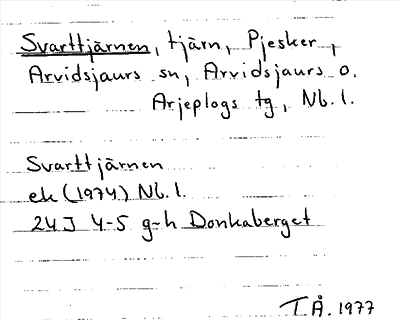 Svarttjärnen, tjärn, Pjesker,
Arvidsjaurs sn, Arvidsjaurs o.
Arjeplogs tg, Nb. l.
Svarttjärnen
ek (1974) Nb. l.
24J 4-5 g-h Donkaberget
T.Å. 1977